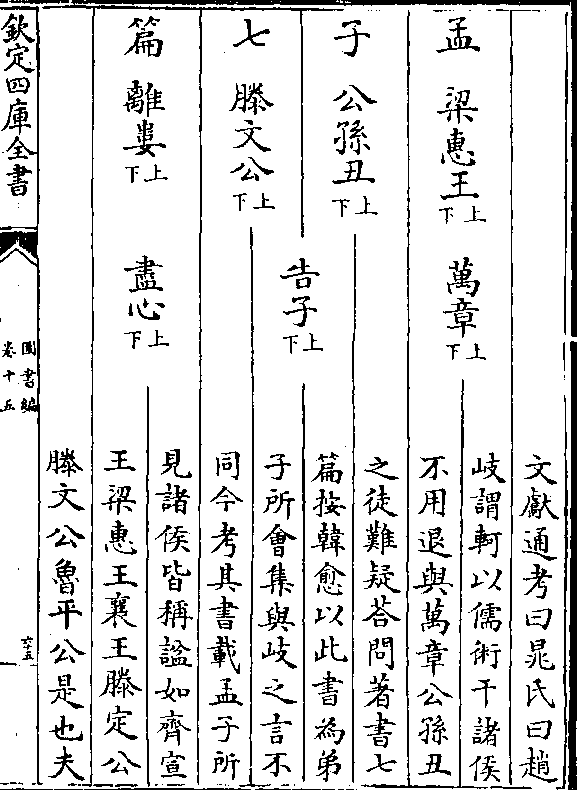 孟子七篇
梁惠王上下
公孫丑上下
滕文公上下
離婁上下
萬章上下
告子上下
盡心上下
文獻通考曰晁氏曰趙
岐謂軻以儒術干諸侯
不用退與萬章公孫丑
之徒難疑荅問著書七
篇按韓愈以此書為弟
子所會集與岐之言不
同今考其書載孟子所
見諸侯皆稱諡如齊宣
王梁惠王襄王滕定公
滕文公魯平公是也夫
欽定四庫全書
圖書編
卷十五
六十五